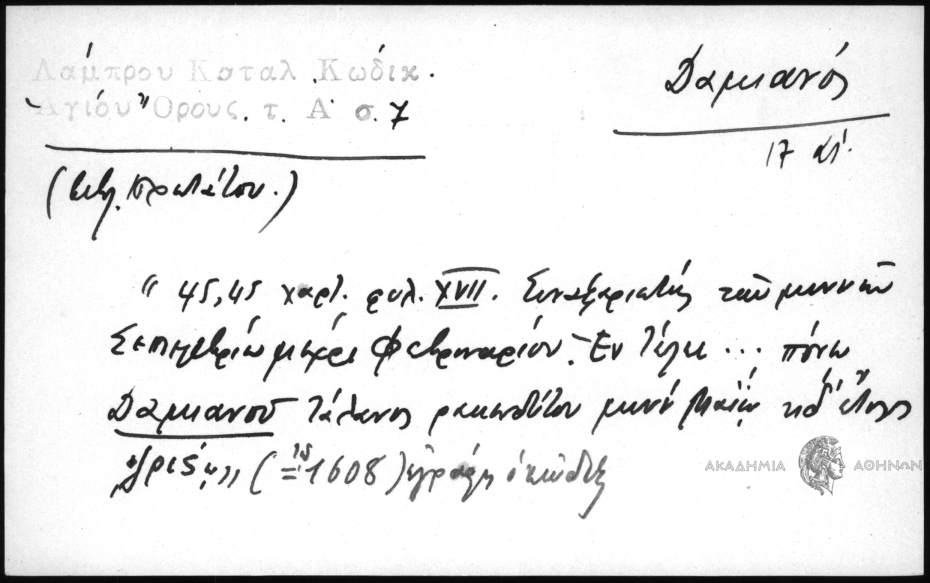 Λάμπρου Καταλ. Κώδικ.
Ἁγίου Ὄρους. τ. Α΄ σ. 7
Δαμιανός
17 αἰ.
(Βιβλ. Πρωτάτου.)
" 45,45 χαρτ. φυλ. XVII. Συναξαριστὴς τῶν μηνῶν
Σεπτεμβρίου μέχρι Φεβρουαρίου. Ἐν τέλει ... πόνῳ
Δαμιανοῦ τάλανος ρακενδύτου μηνὶ Μαΐῳ ἔτους
ζριϛ΄" (= 1608) ἐγράφη ὁ κῶδιξ
ΑΚΑΔΗΜΙΑ ΑΘΗΝΩΝ